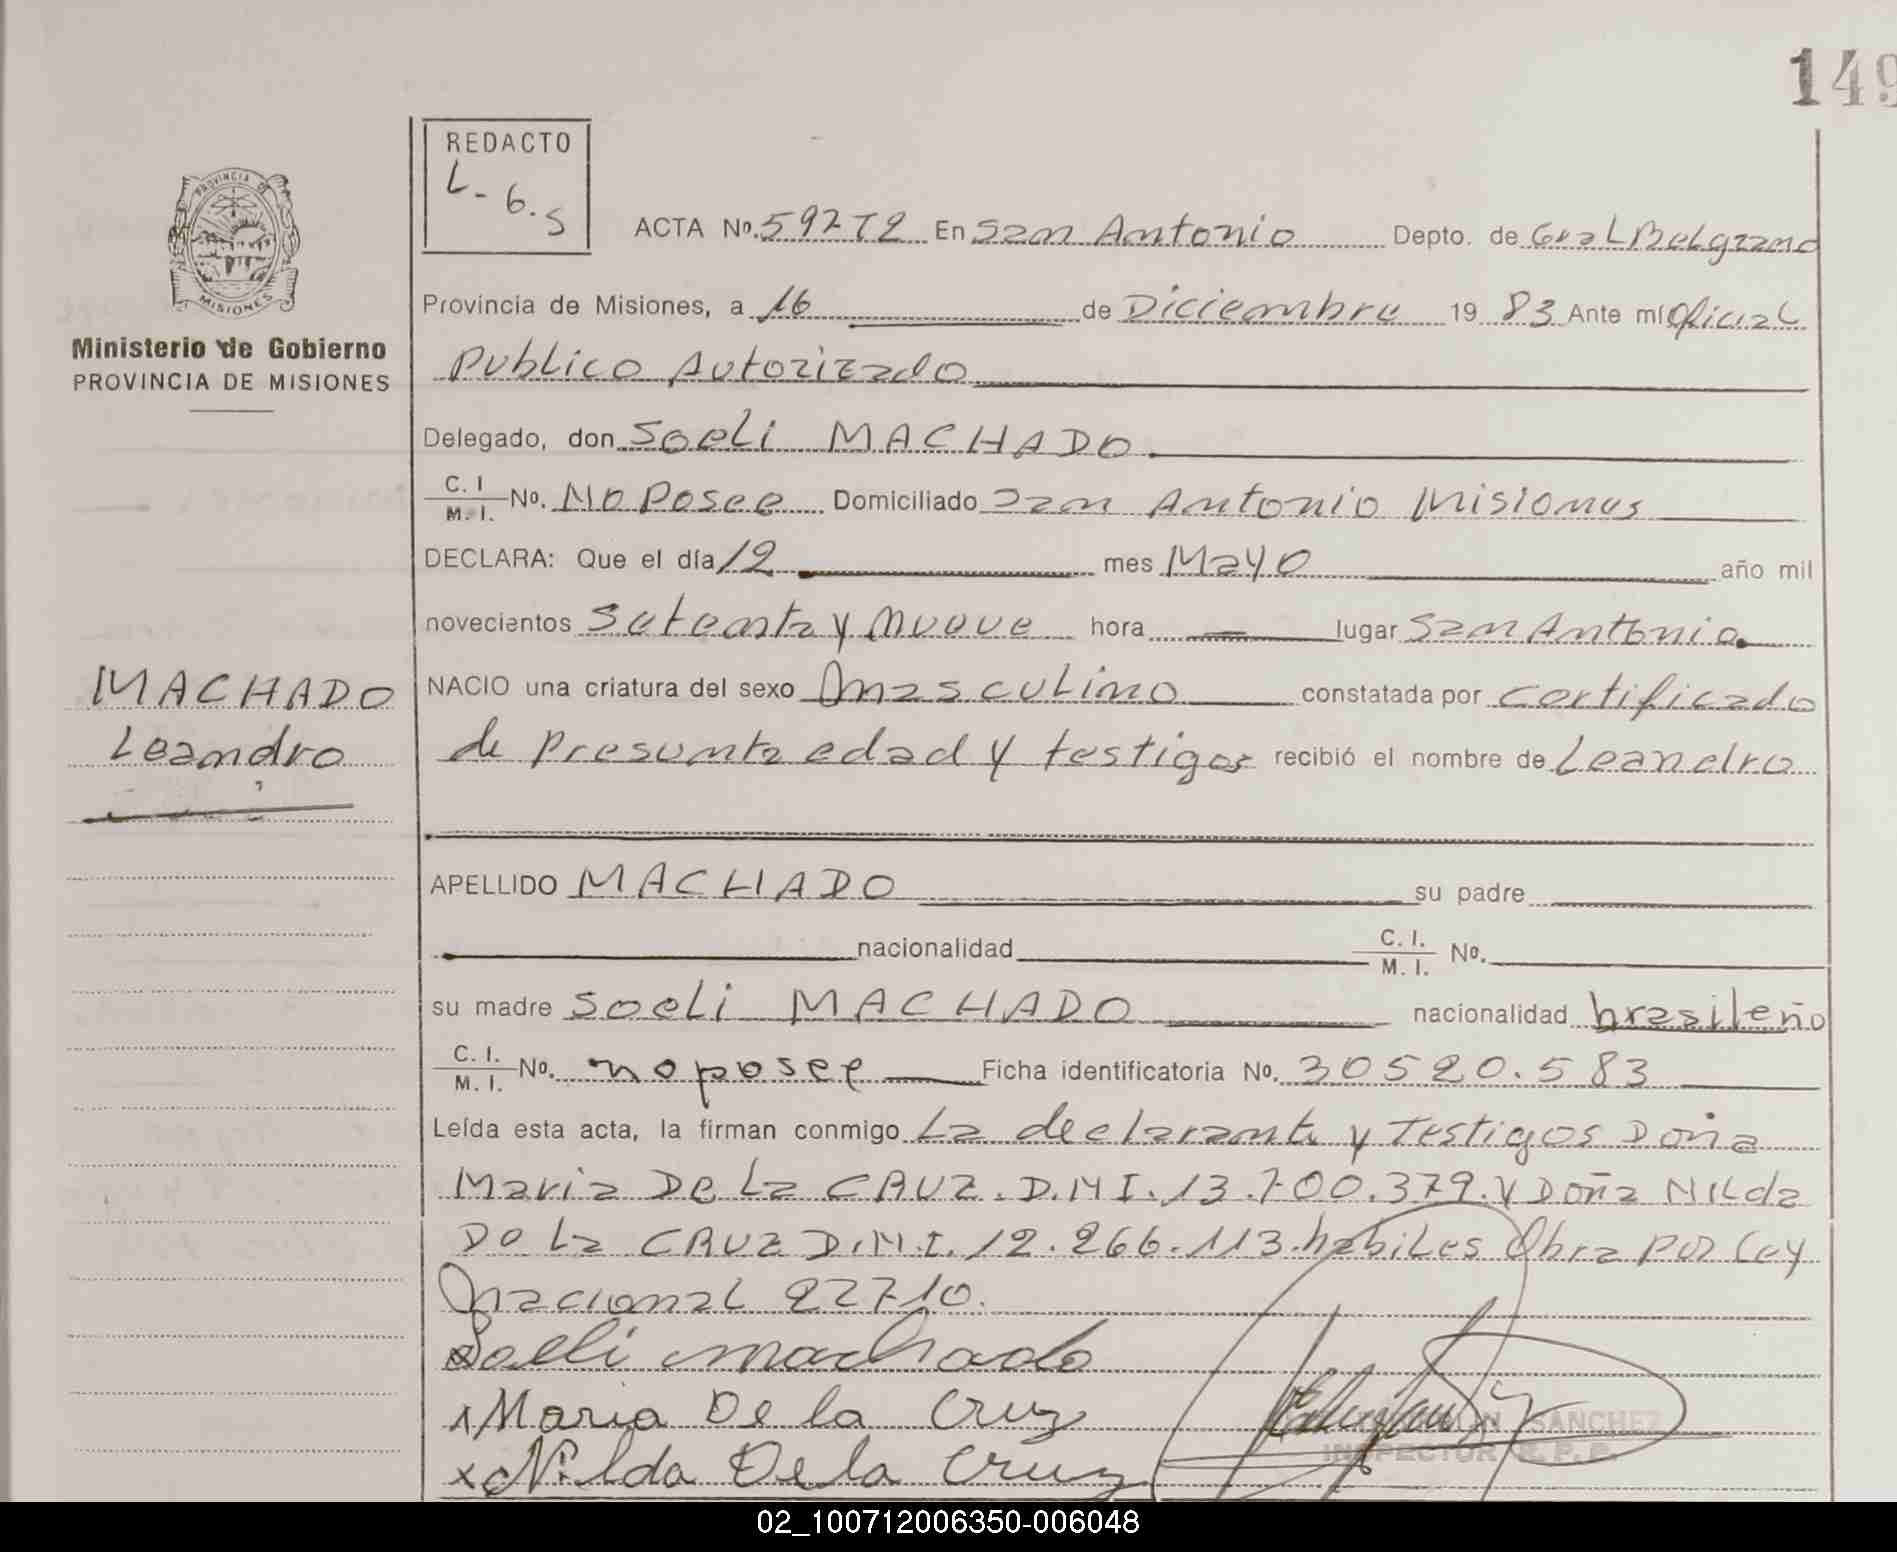 149
REDACTO
L-6.S
PROVINCIA DE
MISIONES
Ministerio de Gobierno
PROVINCIA DE MISIONES
ACTA Nº. 597T2 En San Antonio Depto. de Gral Belgrano
Provincia de Misiones, a 16 de Diciembre 19 83 Ante mí Oficial
Publico Autorizado
Delegado, don Soeli MACHADO
C. I. / M. I. Nº. No Posee Domiciliado San Antonio Misiones
DECLARA: Que el día 12 mes Mayo año mil
novecientos setenta y nueve hora — lugar San Antonio
MACHADO
Leandro
NACIO una criatura del sexo masculino constatada por certificado
de presunta edad y testigos recibió el nombre de Leandro
APELLIDO MACHADO su padre
nacionalidad C. I. / M. I. Nº.
su madre Soeli MACHADO nacionalidad brasileño
C. I. / M. I. Nº. no posee Ficha identificatoria Nº. 30520.583
Leída esta acta, la firman conmigo La declarante y Testigos Doña
Maria De La CRUZ. D.N I. 13.700.379. Y Doña NILda
De La CRUZ D.N.I. 12.266.113. habiles Obra por Ley
nacional 22710.
Soeli machado
x Maria De la Cruz
x Nilda De la Cruz
SANCHEZ
INSPECTOR R. P. P.
02_100712006350-006048